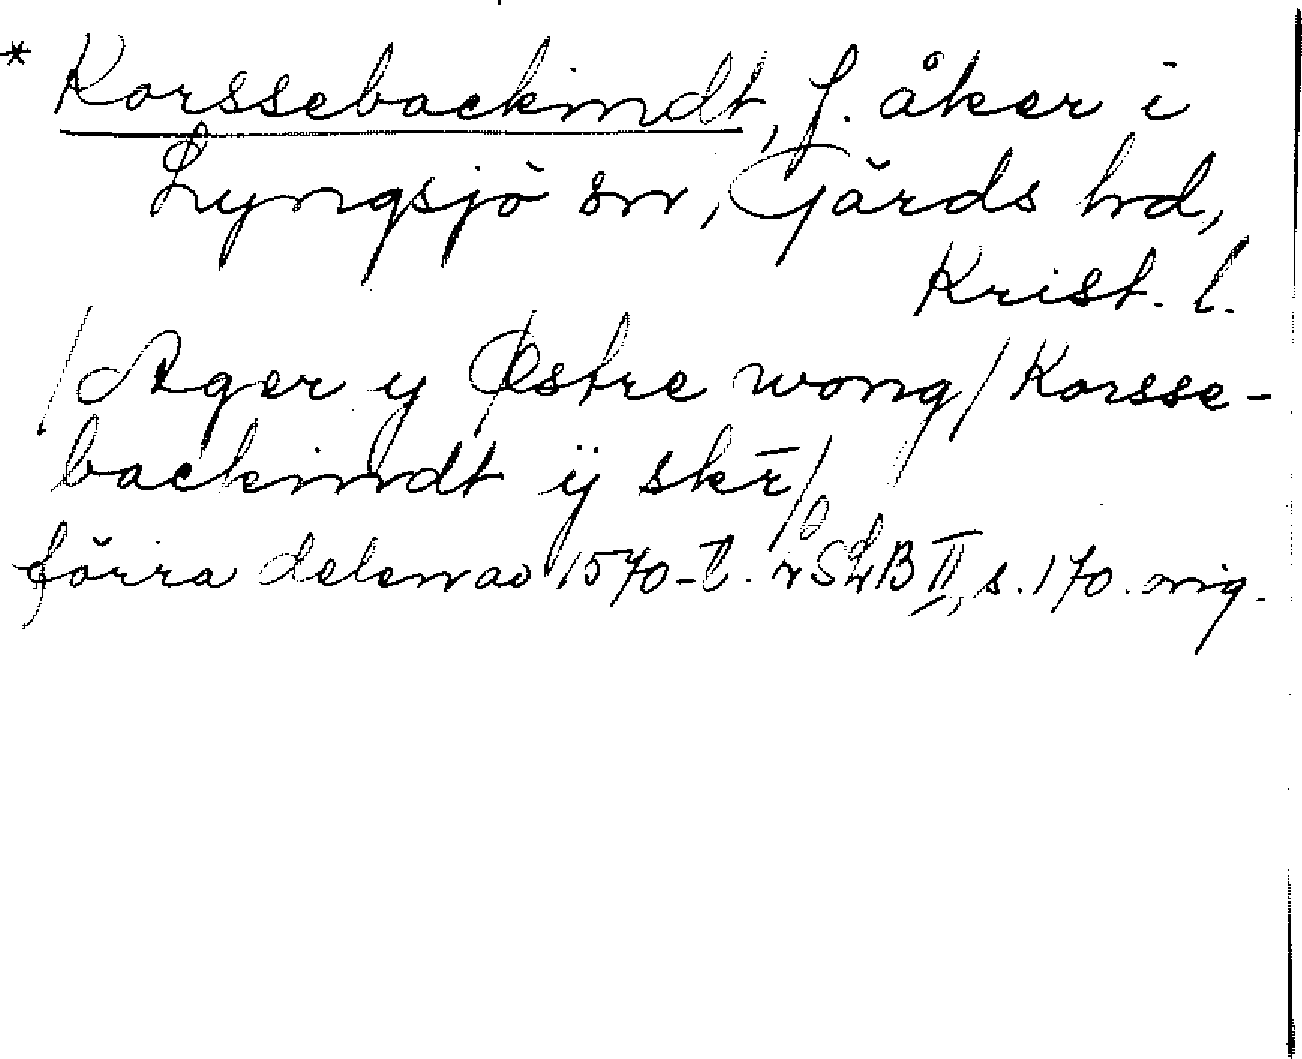 * Korssebackindt, f. åker i
Lyngsjö sn, Gärds hd,
Krist. l.
/Ager y Østre wong/ Korsse-
backindt ÿ skr̄/
förra delen av 1570-t. LSLB II, s. 170. orig.